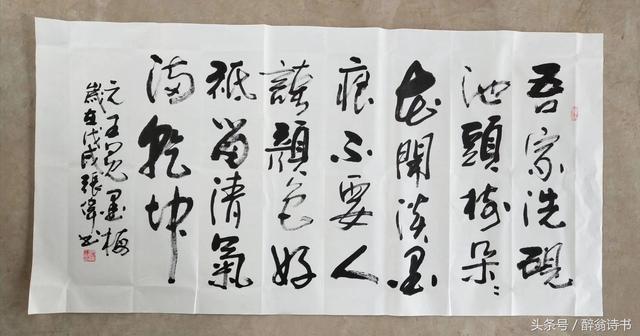 吾家洗硯
池頭樹朵々
花開淡墨
痕不要人
誇顏色好
祗留清氣
滿乾坤
元王冕墨梅
歲在戊戌張偉書
头条号 / 醉翁诗书